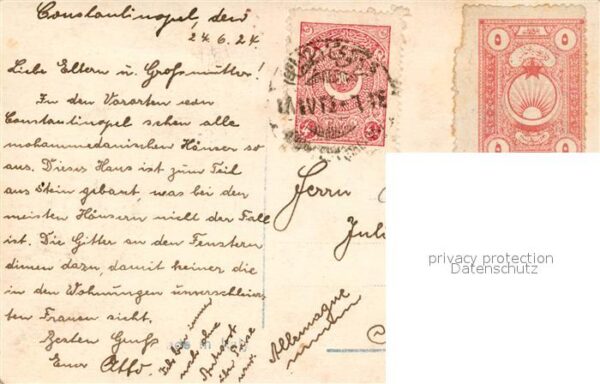 Constantinopel, den
24.6.24.
Liebe Eltern u. Großmutter!
In den Vororten von
Constantinopel sehen alle
mohammedanischen Häuser so
aus. Dieses Haus ist zum Teil
aus Stein gebaut, was bei den
meisten Häusern nicht der Fall
ist. Die Gitter an den Fenstern
dienen dazu, damit keiner die
in den Wohnungen unverschleier-
ten Frauen sieht.
Besten Gruß
Euer
Ich bin immer
noch ohne
Antwort
Herrn
Juli
Allemagne
privacy protection
Datenschutz